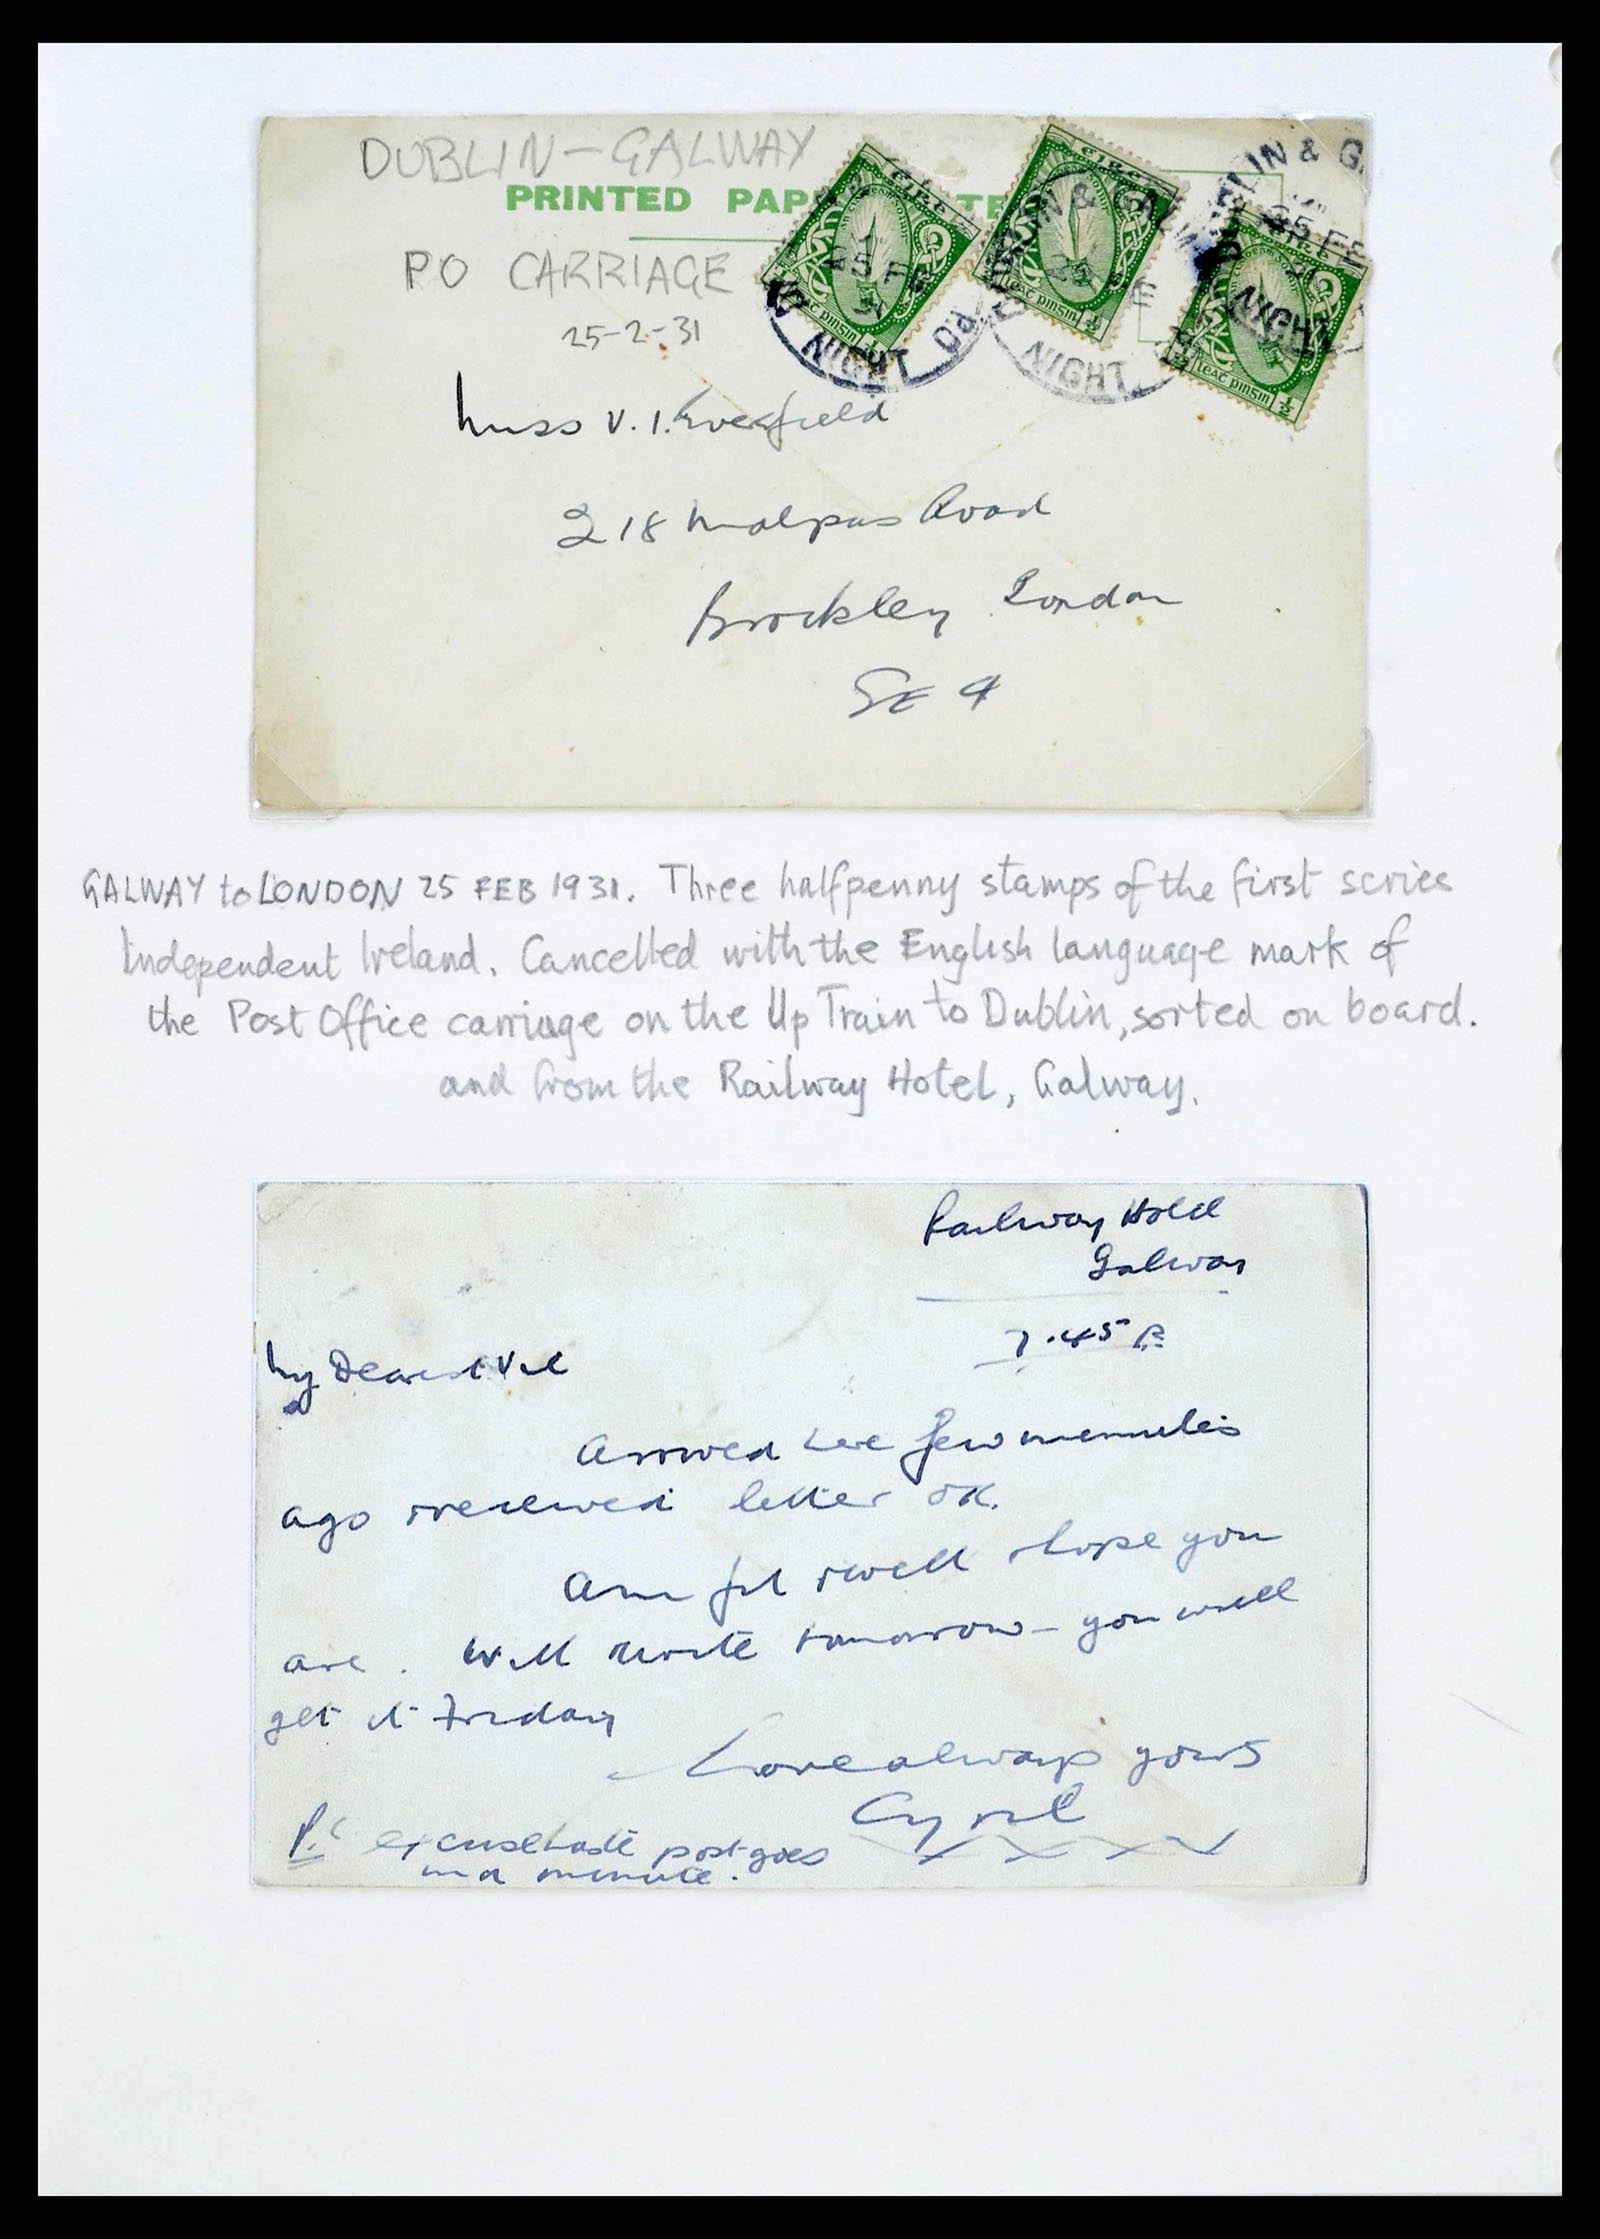 DUBLIN - GALWAY
PRINTED PAP TE
PO CARRIAGE
25-2-31
éire
leat pinsin ½
25 FE
31
NIGHT
éire
leat pinsin ½
LIN & GAL
25 FE
NIGHT
éire
leat pinsin ½
LIN & GA
25 FE
31
NIGHT
Miss V. I. Everfield
218 Malpas Road
Brockley London
SE 4
GALWAY to LONDON 25 FEB 1931. Three halfpenny stamps of the first series
Independent Ireland. Cancelled with the English language mark of
the Post Office carriage on the Up Train to Dublin, sorted on board.
and from the Railway Hotel, Galway.
Railway Hotel
Galway
7.45 P.
My Dearest Vel
Arrived here few minutes
ago & received letter OK.
Am fit & well & hope you
are. Will write tomorrow - you will
get it Friday
Love always yours
Cyril
x x x x
P.S excuse haste post goes
in a minute.